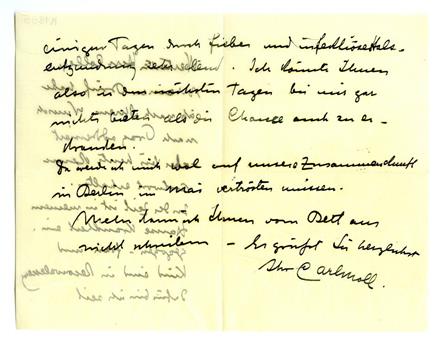 einigen Tagen durch Fieber und infektiöse Hals-
entzündung sehr elend. Ich könnte Ihnen
also in den nächsten Tagen bei mir gar
nichts bieten als die Chance auch zu er-
kranken.
Da werde ich mich wol auf unsere Zusammenkunft
in Berlin im Mai vertrösten müssen.
Mehr kann ich Ihnen vom Bett aus
nicht schreiben – Es grüßt Sie herzlichst
Ihr Carl Moll.